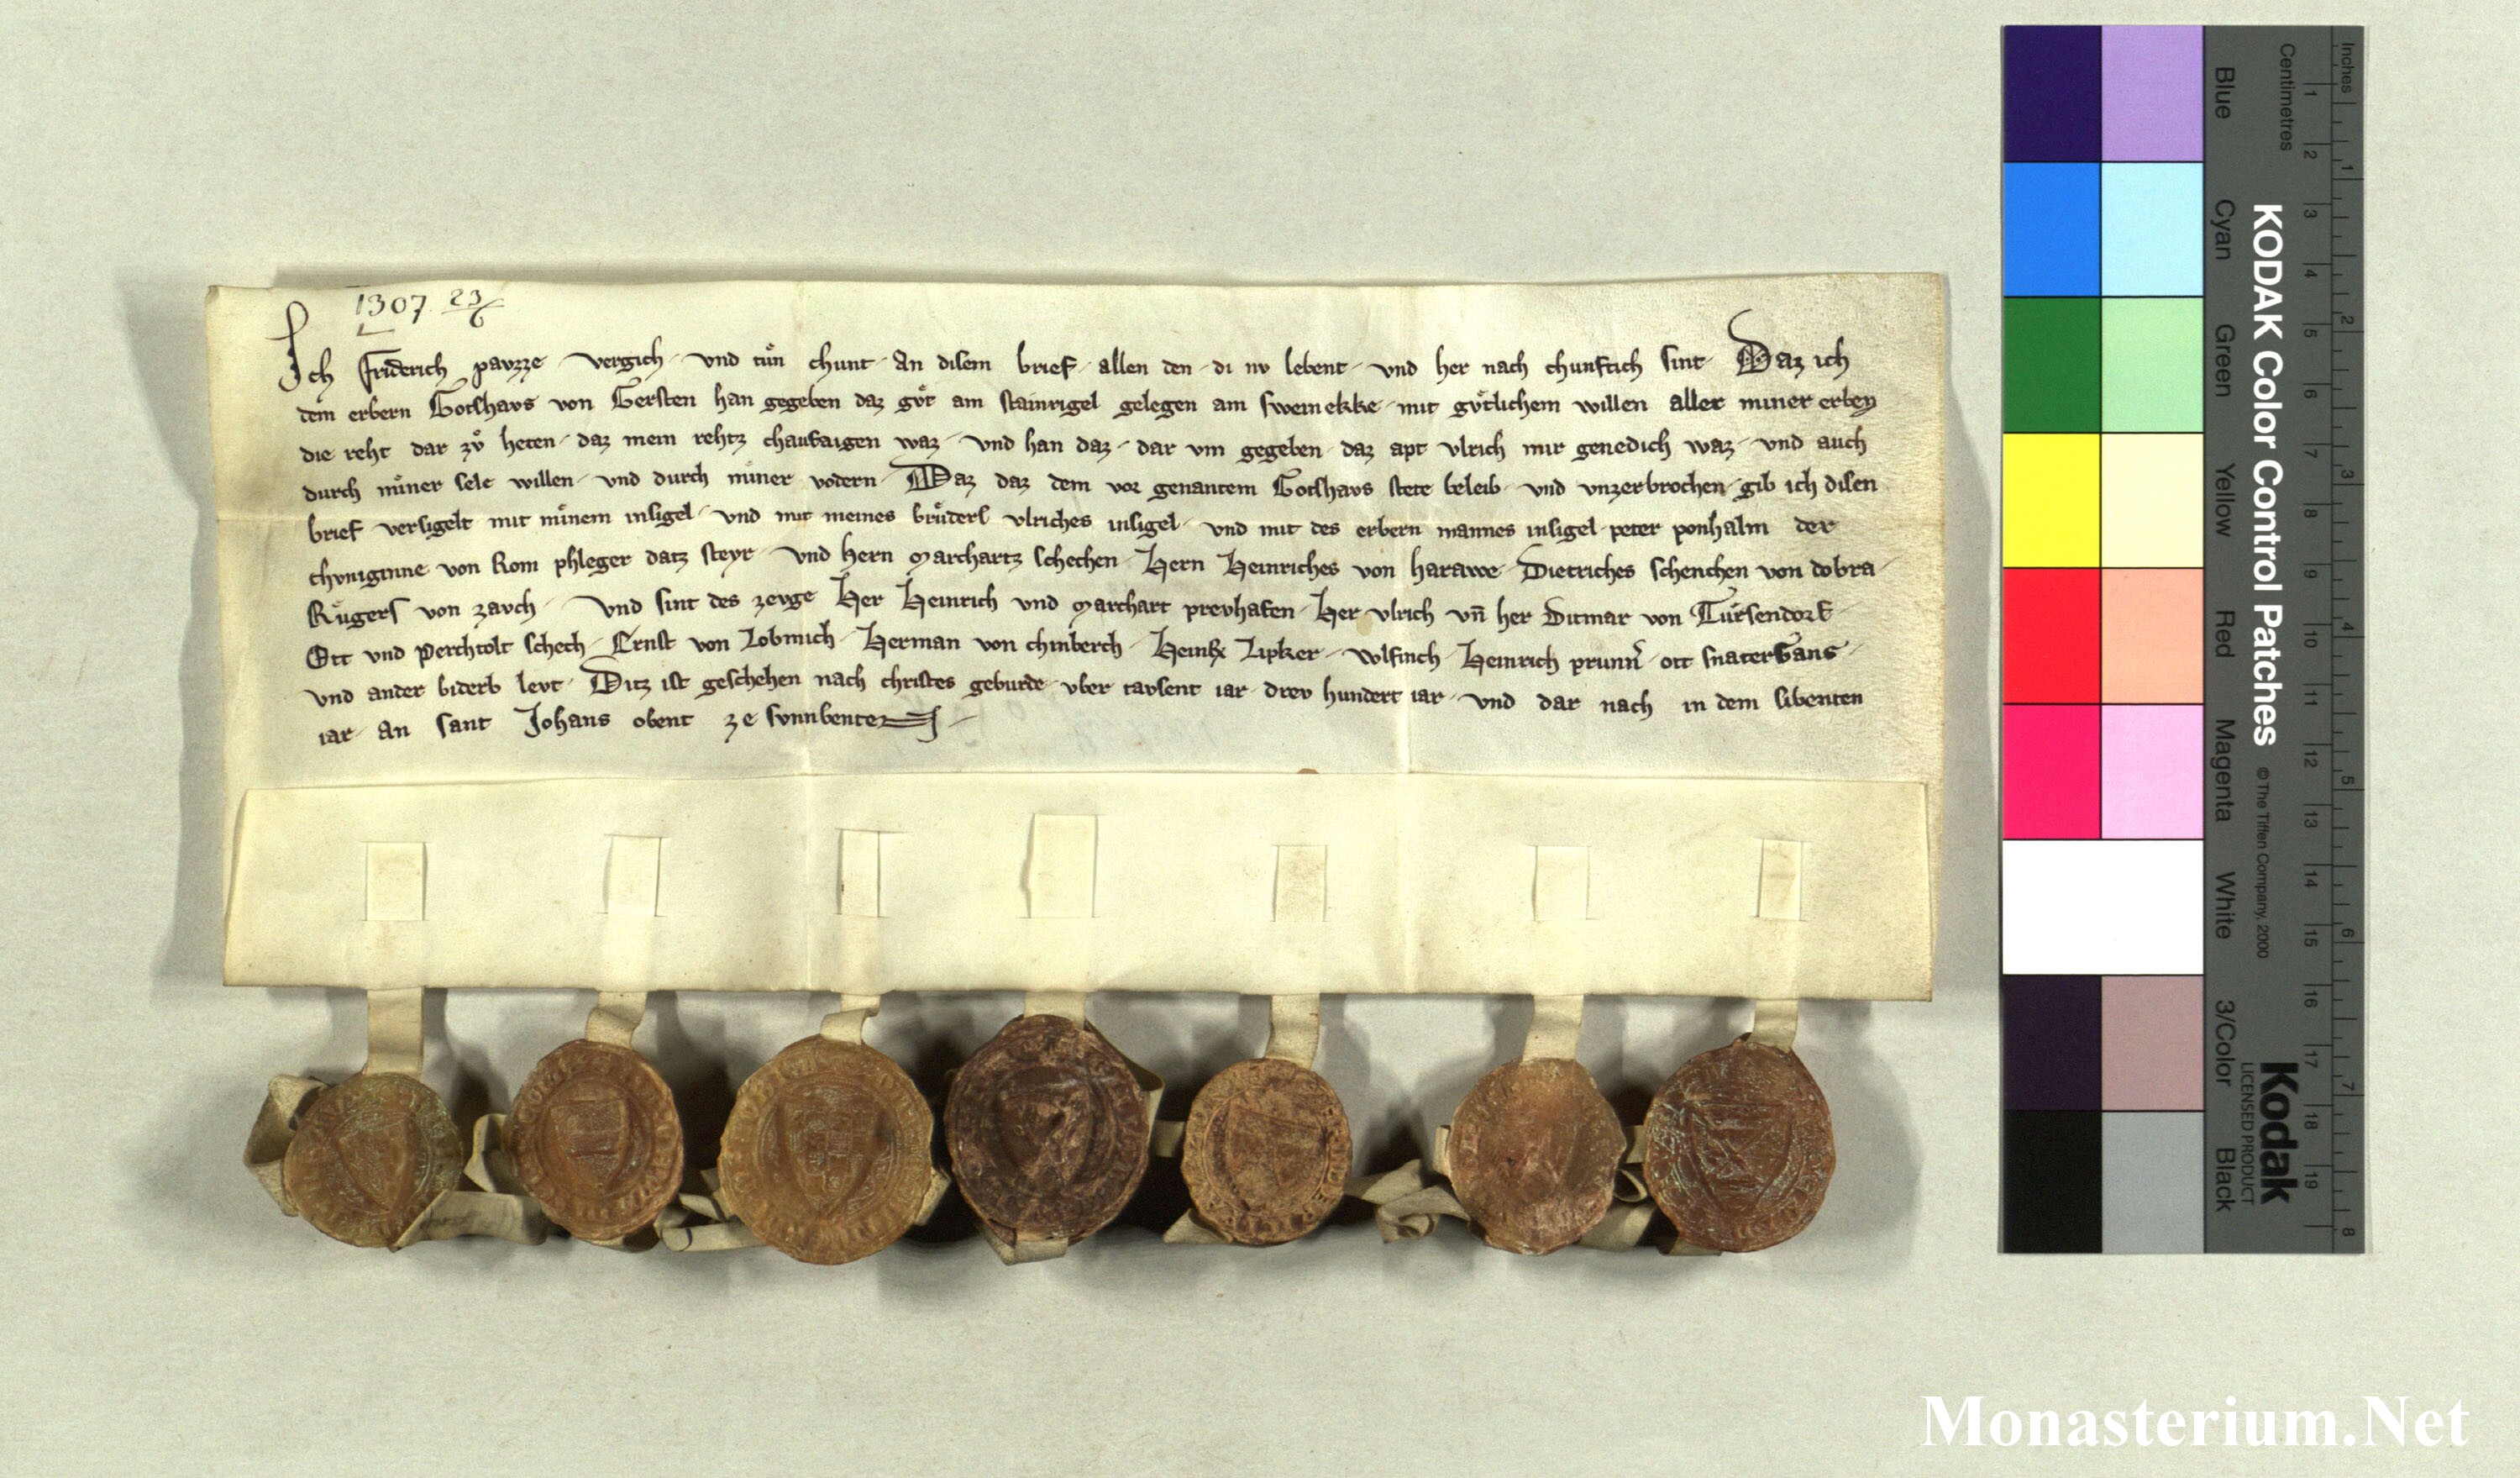 1307 23/6
Ich Friderich pavzze vergich und tuͤn chunt an disem brief allen den di nv lebent und her nach chunftich sint Daz ich
dem erbern Gotshavs von Gersten han gegeben daz guͤt am stainrigel gelegen am swemekke mit guͤtlichem willen aller miner erben
die reht dar zuͦ heten daz mein rehtz chaufaigen waz und han daz dar vm gegeben daz apt vlrich mir genedich waz und auch
durch miner sele willen und durch miner vodern Daz daz dem vor genantem Gotshavs stete beleib und unzerbrochen gib ich disen
brief versigelt mit minem insigel und mit meines bruͤders vlriches insigel und mit des erbern mannes insigel peter ponhalm der
chvniginne von Rom phleger datz steyr und hern Marchartz schechen Hern Heinriches von harawe Dietriches schenchen von dobra
Ruͤgers von zavch und sint des zevge Her Heinrich und Marchart prevhafen Her vlrich vn̄ her Ditmar von Tuͤrsendorf
Ott und Perchtolt schech Ernst von Lobmich Herman von chinberch Lipker wlfinch Heinrich prunn̄ ott snatergans
und ander biderb levt Ditz ist geschehen nach christes geburde vber tavsent iar drev hundert iar und dar nach in dem sibenten
iar an sant Johans obent ze svnnbenten
Inches
Centimetres
1 2 3 4 5 6 7 8 9 10 11 12 13 14 15 16 17 18 19
1 2 3 4 5 6 7 8
Blue Cyan Green Yellow Red Magenta White 3/Color Black
KODAK Color Control Patches © The Tiffen Company, 2000
Kodak
LICENSED PRODUCT
Monasterium.Net